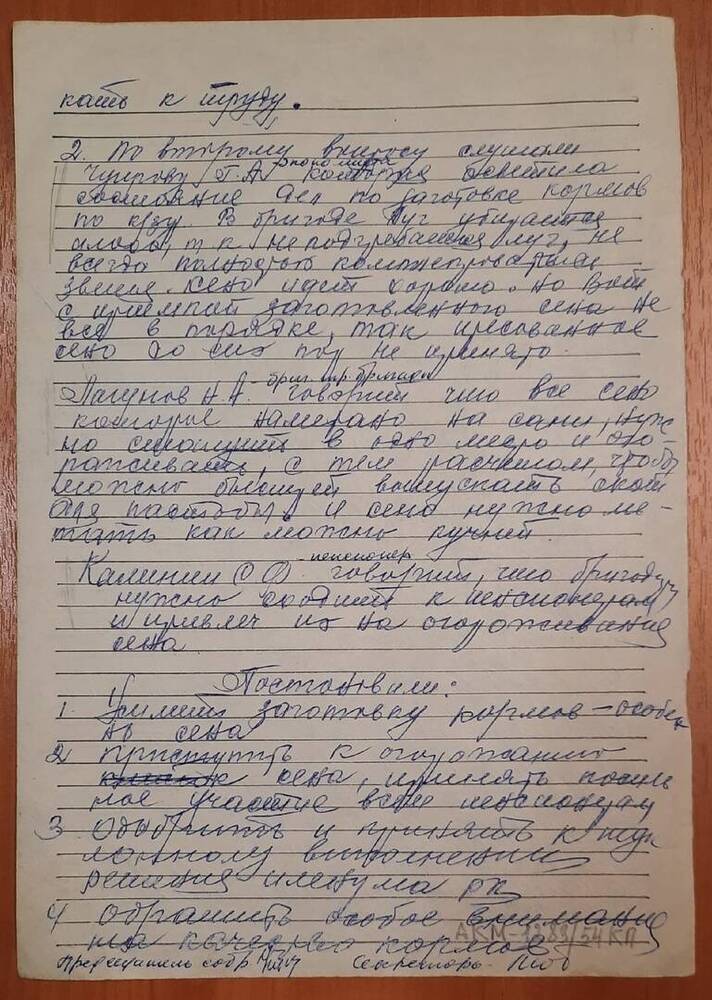 кать к труду.
2. По второму вопросу слушали
экономиста
Чупрову Т.А. которая осветила
состояние дел по заготовке кормов
по к/зу. В бригаде Луг убирается
плохо, т.к. не подгребается луг, не
всегда полностью
звенья. Сено идет хорошо. Но Вот
с приемкой заготовленного сена не
все в порядке, так пресованное
сено до сих пор не принято.
бригадир бригады
Лагунов Н.А. говорит что все сено
которое наметано на сани, нуж
но в одно место и ого-
раживать, с тем расчетом, чтобы
можно выпускать скот
для пастьбы. И сено нужно ме-
тать как можно кучней.
- пенсионер
Калинин С.Ф. говорит, что бригадиру
нужно сходить к пенсионерам
и привлеч их на огораживание
сена
Постановили:
1. Усилить заготовку кормов - особен
но сена
2 приступить к огораживанию
сена, принять посиль
ное участие всем пенсионерам
3 Одобрить и принять к неук
лонному выполнению
решения пленума РК
4 Обратить особое внимание
на качество кормов.
АКМ-1389/54 КП
Председатель собр Секретарь